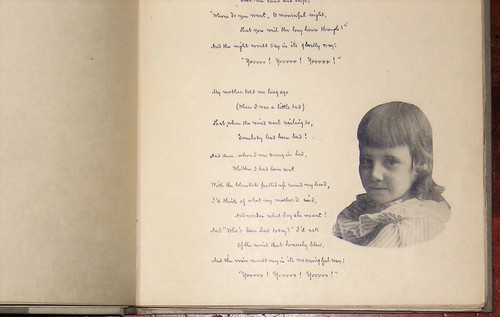 do you want, O mournful night,
That you wail the long hours through?"
And the night would say in its ghostly way:
"Yoooo! Yoooo! Yoooo!"
My mother told me long ago
(When I was a little lad)
That when the wind went wailing so,
Somebody had been bad!
And then, when I was snug in bed,
Whither I had been sent
With the blankets pulled up round my head,
I'd think of what my mother'd said,
And wonder what boy she meant!
And "Who's been bad today?" I'd ask
Of the wind that hoarsely blew,
And the voice would say in its meaningful way:
"Yoooo! Yoooo! Yoooo!"